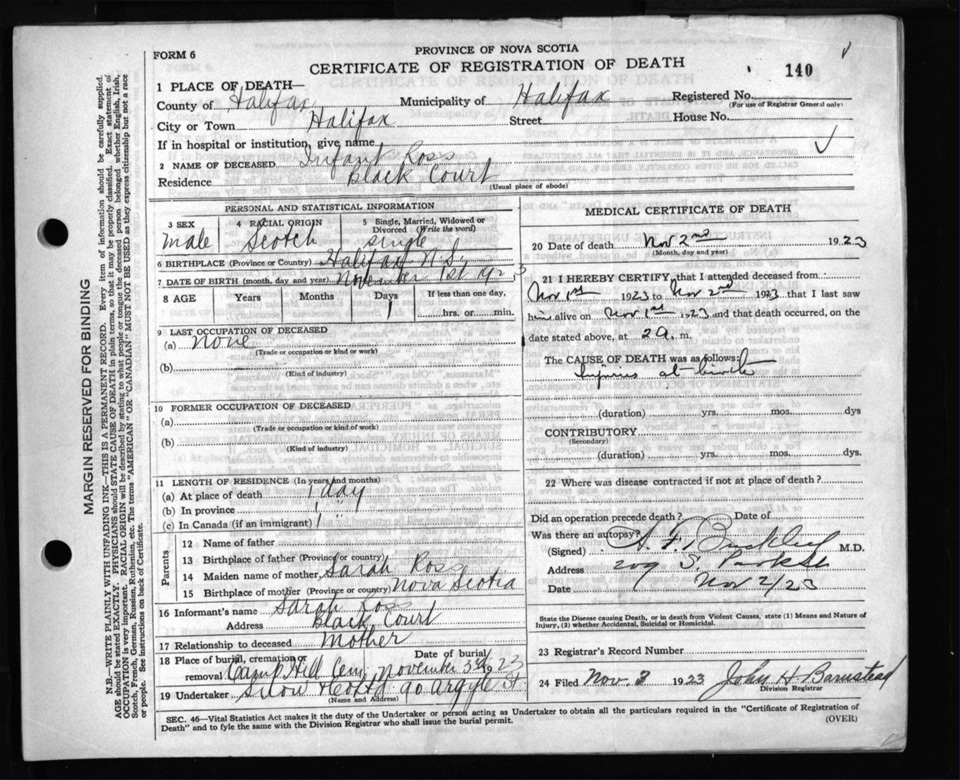 FORM 6
PROVINCE OF NOVA SCOTIA
CERTIFICATE OF REGISTRATION OF DEATH
140
1 PLACE OF DEATH—
County of Halifax Municipality of Halifax Registered No.
(For use of Registrar General only)
City or Town Halifax Street House No.
If in hospital or institution, give name
2 NAME OF DECEASED Infant Ross
Residence Black Court
(Usual place of abode)
MARGIN RESERVED FOR BINDING
N.B.—WRITE PLAINLY WITH UNFADING INK—THIS IS A PERMANENT RECORD. Every item of information should be carefully supplied.
AGE should be stated EXACTLY. PHYSICIANS should STATE CAUSE OF DEATH in plain terms, so that it may be properly classified. Exact statement of
OCCUPATION is very important. RACIAL ORIGIN will be described by stating to what people or tongue the deceased person belonged whether English, Irish,
Scotch, French, German, Russian, Ruthenian, etc. The terms "AMERICAN" OR "CANADIAN" MUST NOT BE USED as they express citizenship but not a race
or people. See instructions on back of Certificate.
PERSONAL AND STATISTICAL INFORMATION
3 SEX 4 RACIAL ORIGIN 5 Single, Married, Widowed or
Divorced (Write the word)
Male Scotch Single
6 BIRTHPLACE (Province or Country) Halifax N.S.
7 DATE OF BIRTH (month, day and year) November 1st 1923
8 AGE Years Months Days If less than one day,
1 hrs. or min.
9 LAST OCCUPATION OF DECEASED
(a) None
(Trade or occupation or kind or work)
(b)
(Kind of industry)
10 FORMER OCCUPATION OF DECEASED
(a)
(Trade or occupation or kind of work)
(b)
(Kind of industry)
11 LENGTH OF RESIDENCE (In years and months)
(a) At place of death 1 day
(b) In province " "
(c) In Canada (if an immigrant)
Parents
12 Name of father
13 Birthplace of father (Province or country)
14 Maiden name of mother Sarah Ross
15 Birthplace of mother (Province or country) Nova Scotia
16 Informant's name Sarah Ross
Address Black Court
17 Relationship to deceased Mother
18 Place of burial, cremation or removal Camp Hill Cem Date of burial November 3rd 23
19 Undertaker Snow & Co Ltd 90 Argyle St
(Name and Address)
MEDICAL CERTIFICATE OF DEATH
20 Date of death Nov 2nd 1923
(Month, day and year)
21 I HEREBY CERTIFY that I attended deceased from
Nov 1st 1923 to Nov 2nd 1923 that I last saw
him alive on Nov 1st 1923 and that death occurred, on the
date stated above, at 2 a. m.
The CAUSE OF DEATH was as follows:
Injuries at birth
(duration) yrs. mos. dys
CONTRIBUTORY
(Secondary)
(duration) yrs. mos. dys.
22 Where was disease contracted if not at place of death?
Did an operation precede death? Date of
Was there an autopsy?
(Signed) A. F. Buckley M.D.
Address 209 S. Park St
Date Nov 2/23
State the Disease causing Death, or in death from Violent Causes, state (1) Means and Nature of
Injury, (2) whether Accidental, Suicidal or Homicidal.
23 Registrar's Record Number
24 Filed Nov. 3 1923 John H Barnstead
Division Registrar
SEC. 46—Vital Statistics Act makes it the duty of the Undertaker or person acting as Undertaker to obtain all the particulars required in the "Certificate of Registration of
Death" and to fyle the same with the Division Registrar who shall issue the burial permit.
(OVER)